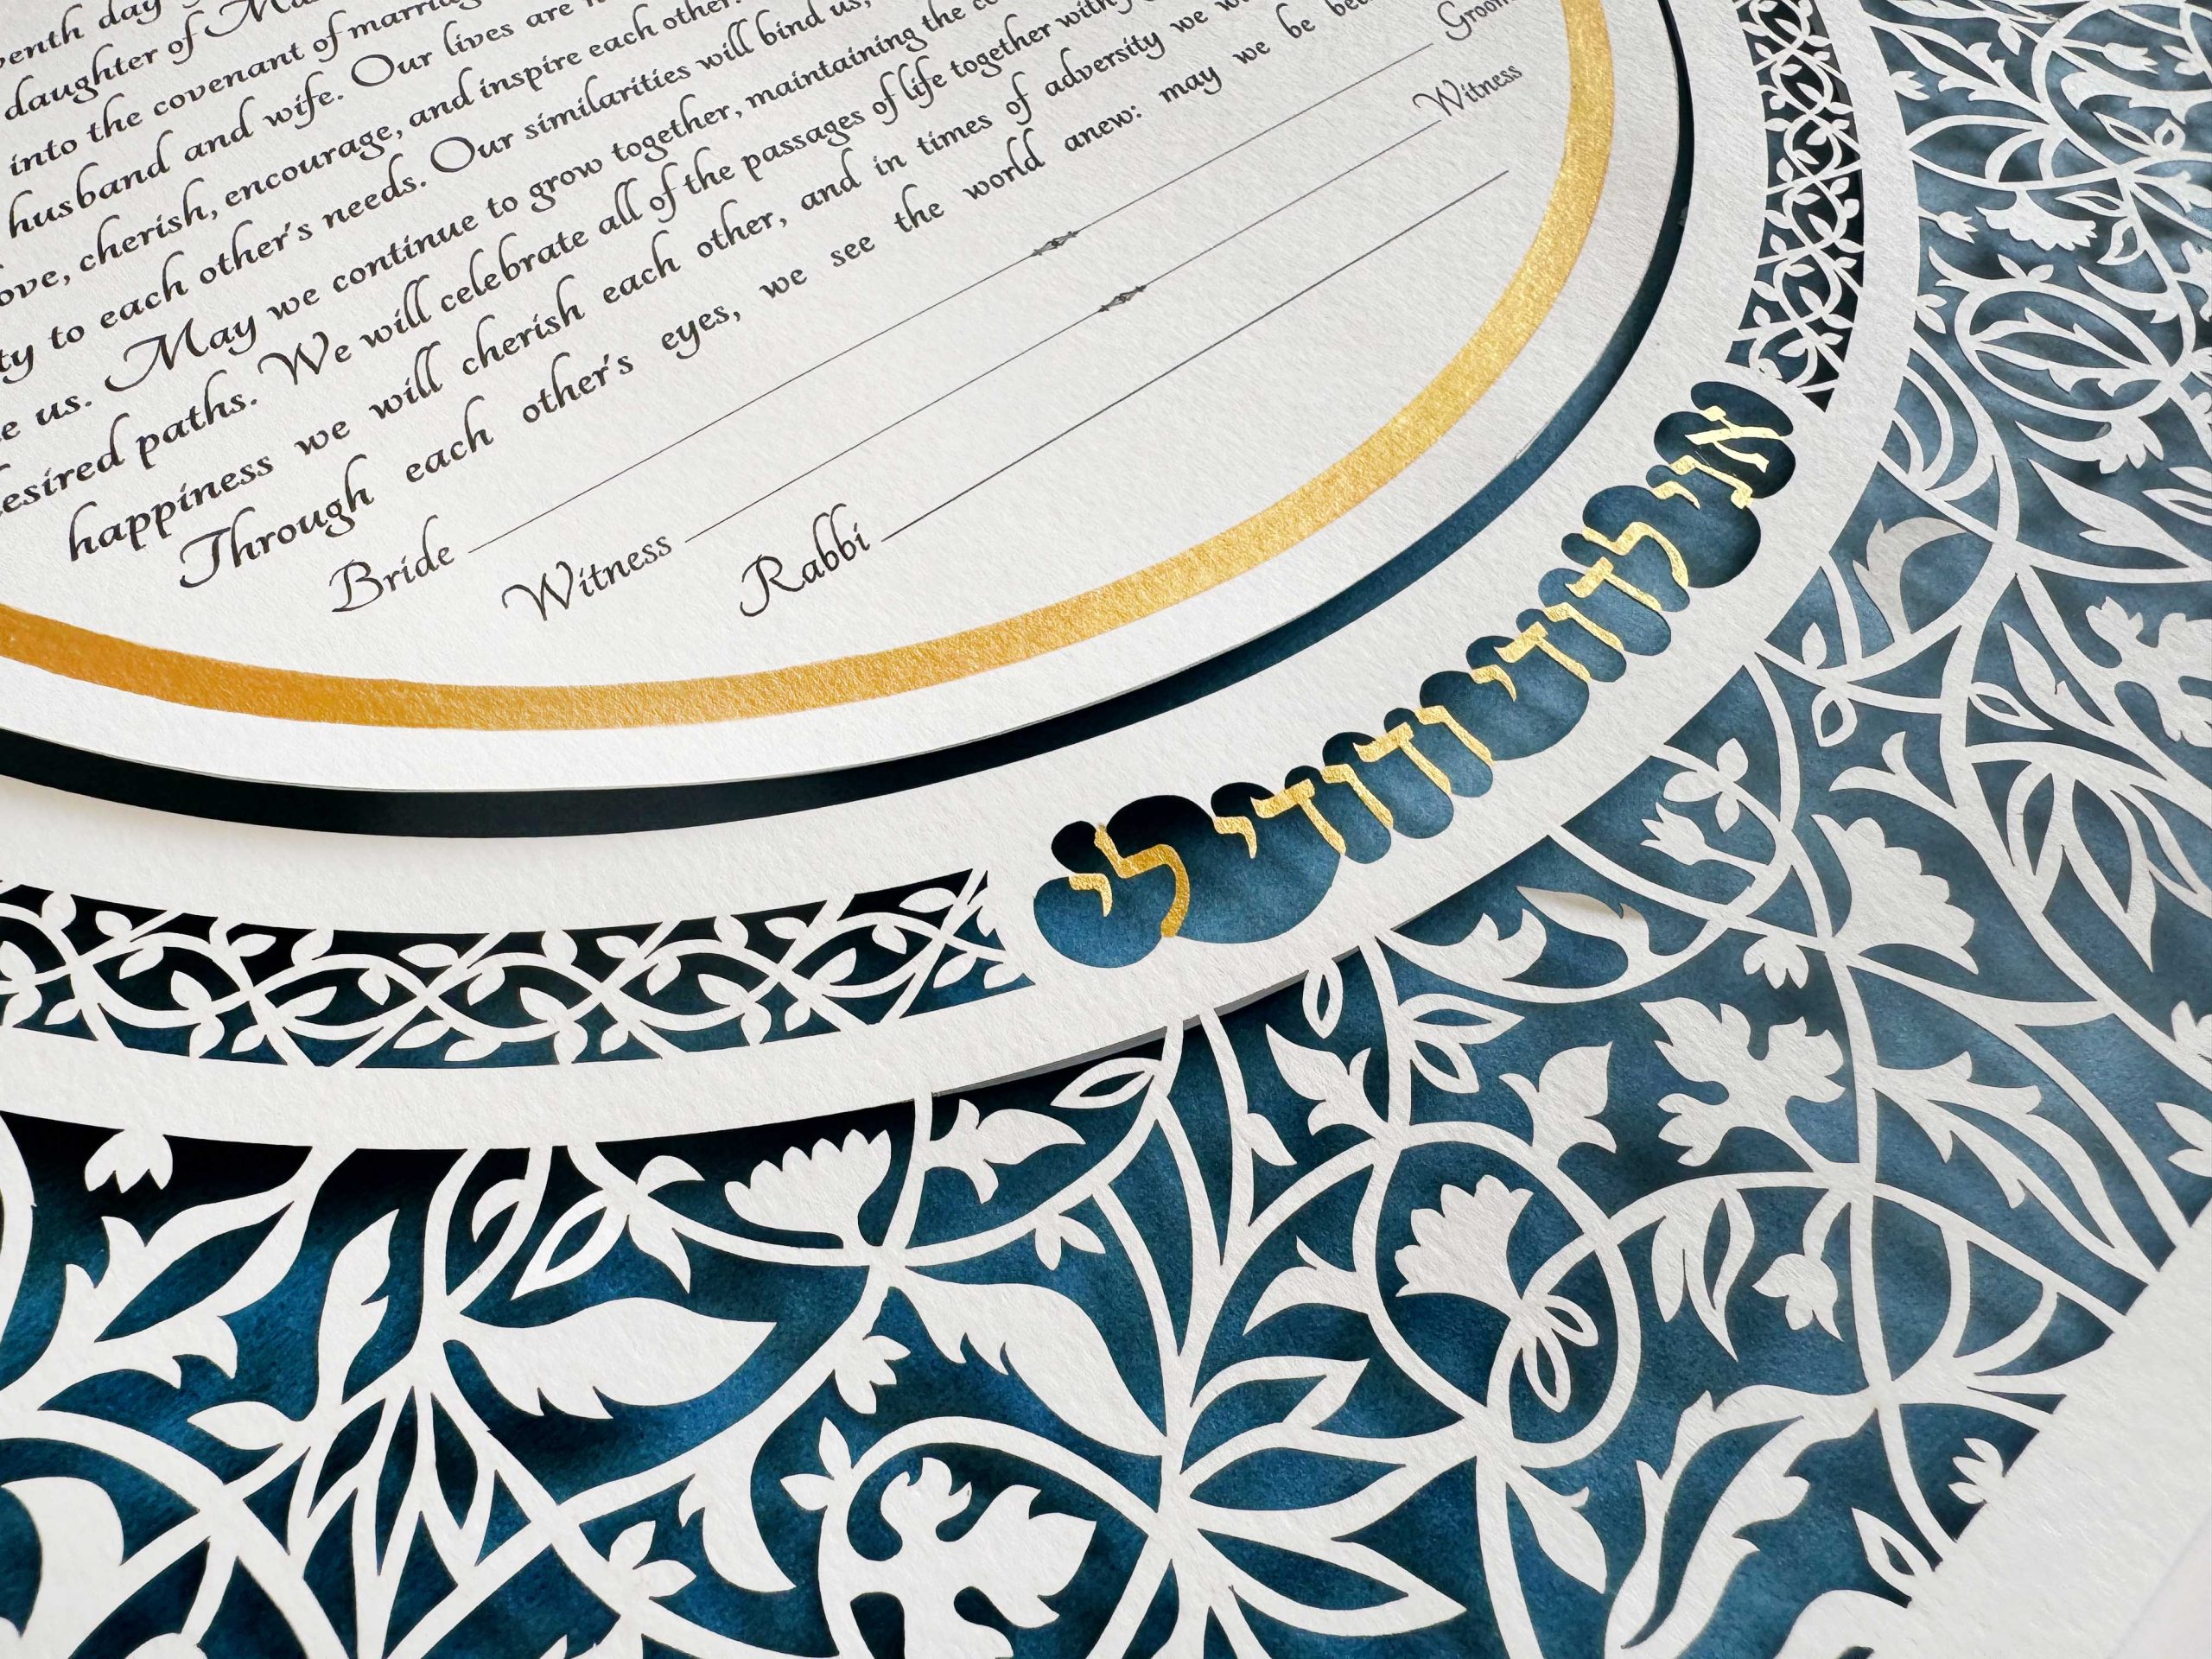 venth day
daughter of
into the covenant of
husband and wife. Our lives are
cherish, encourage, and inspire each other.
to each other's needs. Our similarities will bind us,
us. May we continue to grow together, maintaining the
paths. We will celebrate all of the passages of life together with
happiness we will cherish each other, and in times of adversity we
Through each other's eyes, we see the world anew: may we be
Bride Groom
Witness Witness
Rabbi
אני לדודי ודודי לי